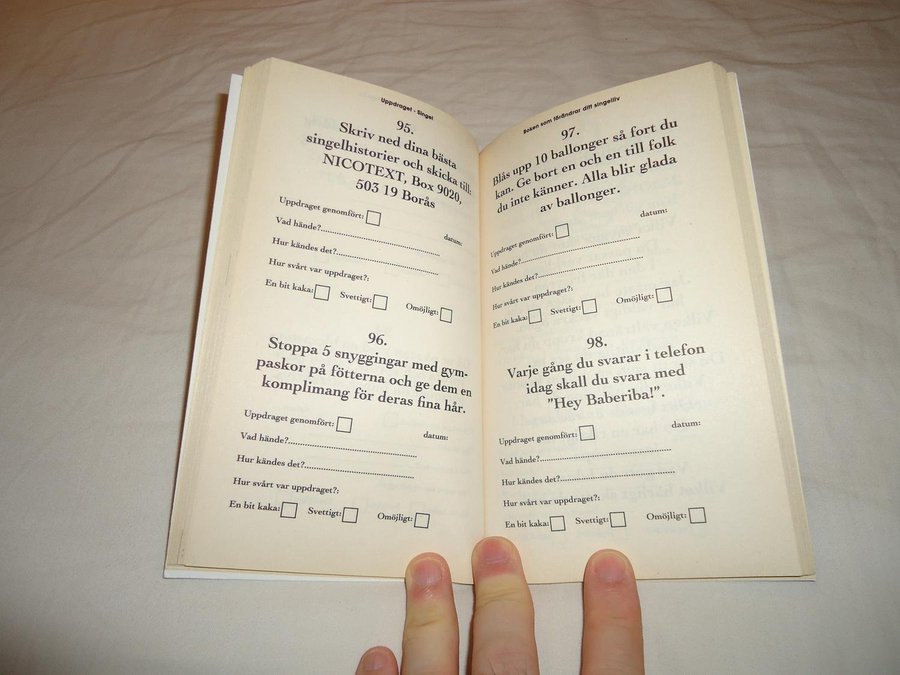 Uppdraget - Singel
95.
Skriv ned dina bästa
singelhistorier och skicka till:
NICOTEXT, Box 9020,
503 19 Borås
Uppdraget genomfört:
datum:
Vad hände?
Hur kändes det?
Hur svårt var uppdraget?:
En bit kaka: Svettigt: Omöjligt:
96.
Stoppa 5 snyggingar med gym-
paskor på fötterna och ge dem en
komplimang för deras fina hår.
Uppdraget genomfört:
datum:
Vad hände?
Hur kändes det?
Hur svårt var uppdraget?:
En bit kaka: Svettigt: Omöjligt:
Boken som förändrar ditt singelliv
97.
Blås upp 10 ballonger så fort du
kan. Ge bort en och en till folk
du inte känner. Alla blir glada
av ballonger.
Uppdraget genomfört: datum:
Vad hände?
Hur kändes det?
Hur svårt var uppdraget?:
En bit kaka: Svettigt: Omöjligt:
98.
Varje gång du svarar i telefon
idag skall du svara med
"Hey Baberiba!".
Uppdraget genomfört: datum:
Vad hände?
Hur kändes det?
Hur svårt var uppdraget?:
En bit kaka: Svettigt: Omöjligt: